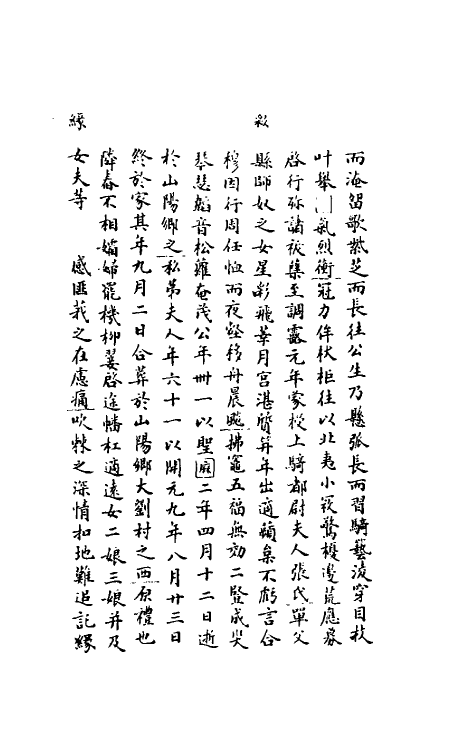 而淹留歌紫芝而長往公生乃懸弧長而習騎藝淩穿目
叶舉 氣烈衝冠力侔伏柜往以北夷小寇驚擾邊荒應募
啓行弥諸祲集至調露元年蒙授上騎都尉夫人張氏單父
縣師奴之女星彩飛華月宮湛質笄年出適蘋藻不虧言合
穆因行周任恤而夜壑移舟晨飈拂鼊五福無効二豎成災
琴瑟韜音松蘿奄茂公年卌一以聖曆二年四月十二日逝
於山陽鄉之私第夫人年六十一以開元九年八月廿三日
終於家其年九月二日合葬於山陽鄉大劉村之西原禮也
隣舂不相孀婦罷機柳翣啓途幡杠適遠女二娘三娘并及
女夫等 感匪莪之在慮痛吹棘之深情扣地難追託緣
彩
緣